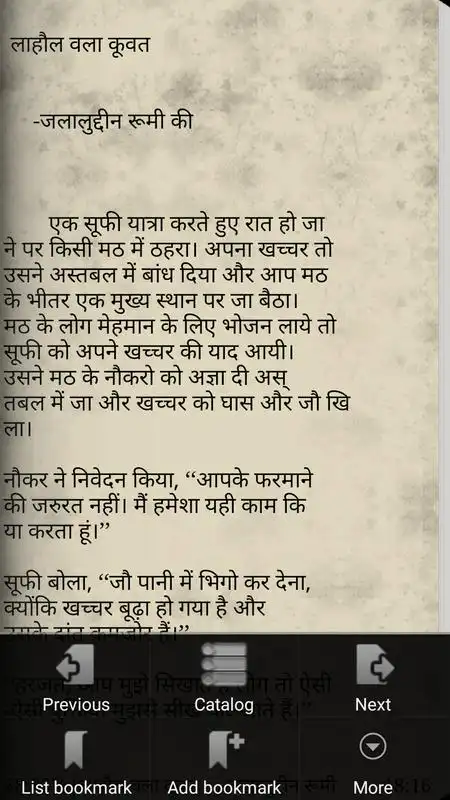 लाहौल वला कूवत
-जलालुद्दीन रूमी की
एक सूफी यात्रा करते हुए रात हो जा
ने पर किसी मठ में ठहरा। अपना खच्चर तो
उसने अस्तबल में बांध दिया और आप मठ
के भीतर एक मुख्य स्थान पर जा बैठा।
मठ के लोग मेहमान के लिए भोजन लाये तो
सूफी को अपने खच्चर की याद आयी।
उसने मठ के नौकरो को अज्ञा दी अस्
तबल में जा और खच्चर को घास और जौ खि
ला।
नौकर ने निवेदन किया, ‘‘आपके फरमाने
की जरुरत नहीं। मैं हमेशा यही काम कि
या करता हूं।’’
सूफी बोला, ‘‘जौ पानी में भिगो कर देना,
क्योंकि खच्चर बूढ़ा हो गया है और
उसके दांत कमजोर हैं।’’
आप मुझे सिखाते हैं लोग तो ऐसी
मुझसे सीख हैं।’’
Previous
Catalog
Next
List bookmark
Add bookmark
More